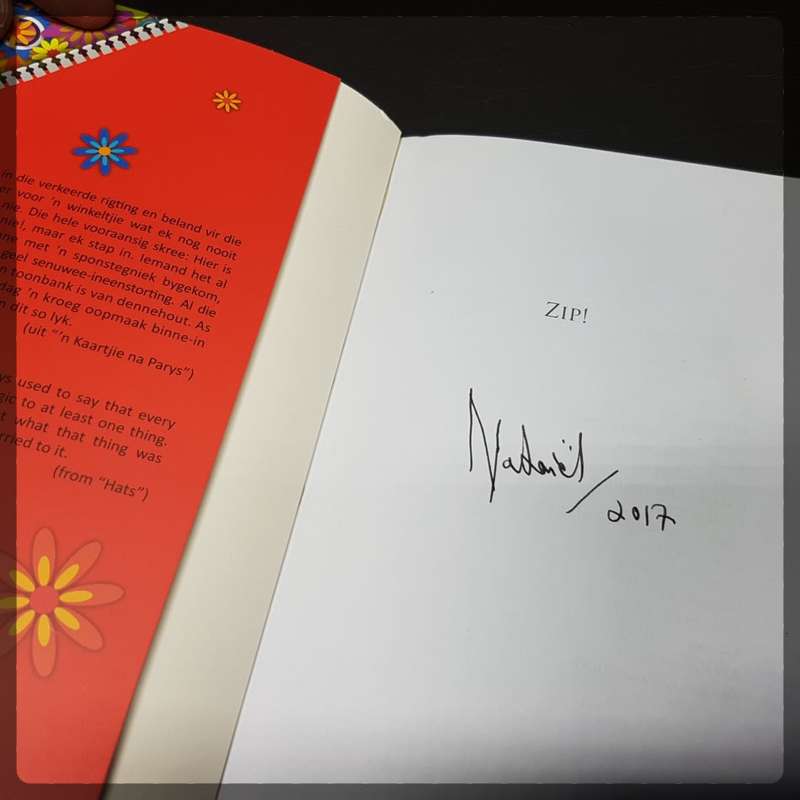 in die verkeerde rigting en beland vir die
er voor 'n winkeltjie wat ek nog nooit
nie. Die hele vooraansig skree: Hier is
nie!, maar ek stap in. Iemand het al
ne met 'n sponstegniek bygekom,
geel senuwee-ineenstorting. Al die
n toonbank is van dennehout. As
dag 'n kroeg oopmaak binne-in
n dit so lyk.
(uit "'n Kaartjie na Parys")
ys used to say that every
gic to at least one thing.
t what that thing was
rried to it.
(from "Hats")
ZIP!
Nataniël/
2017